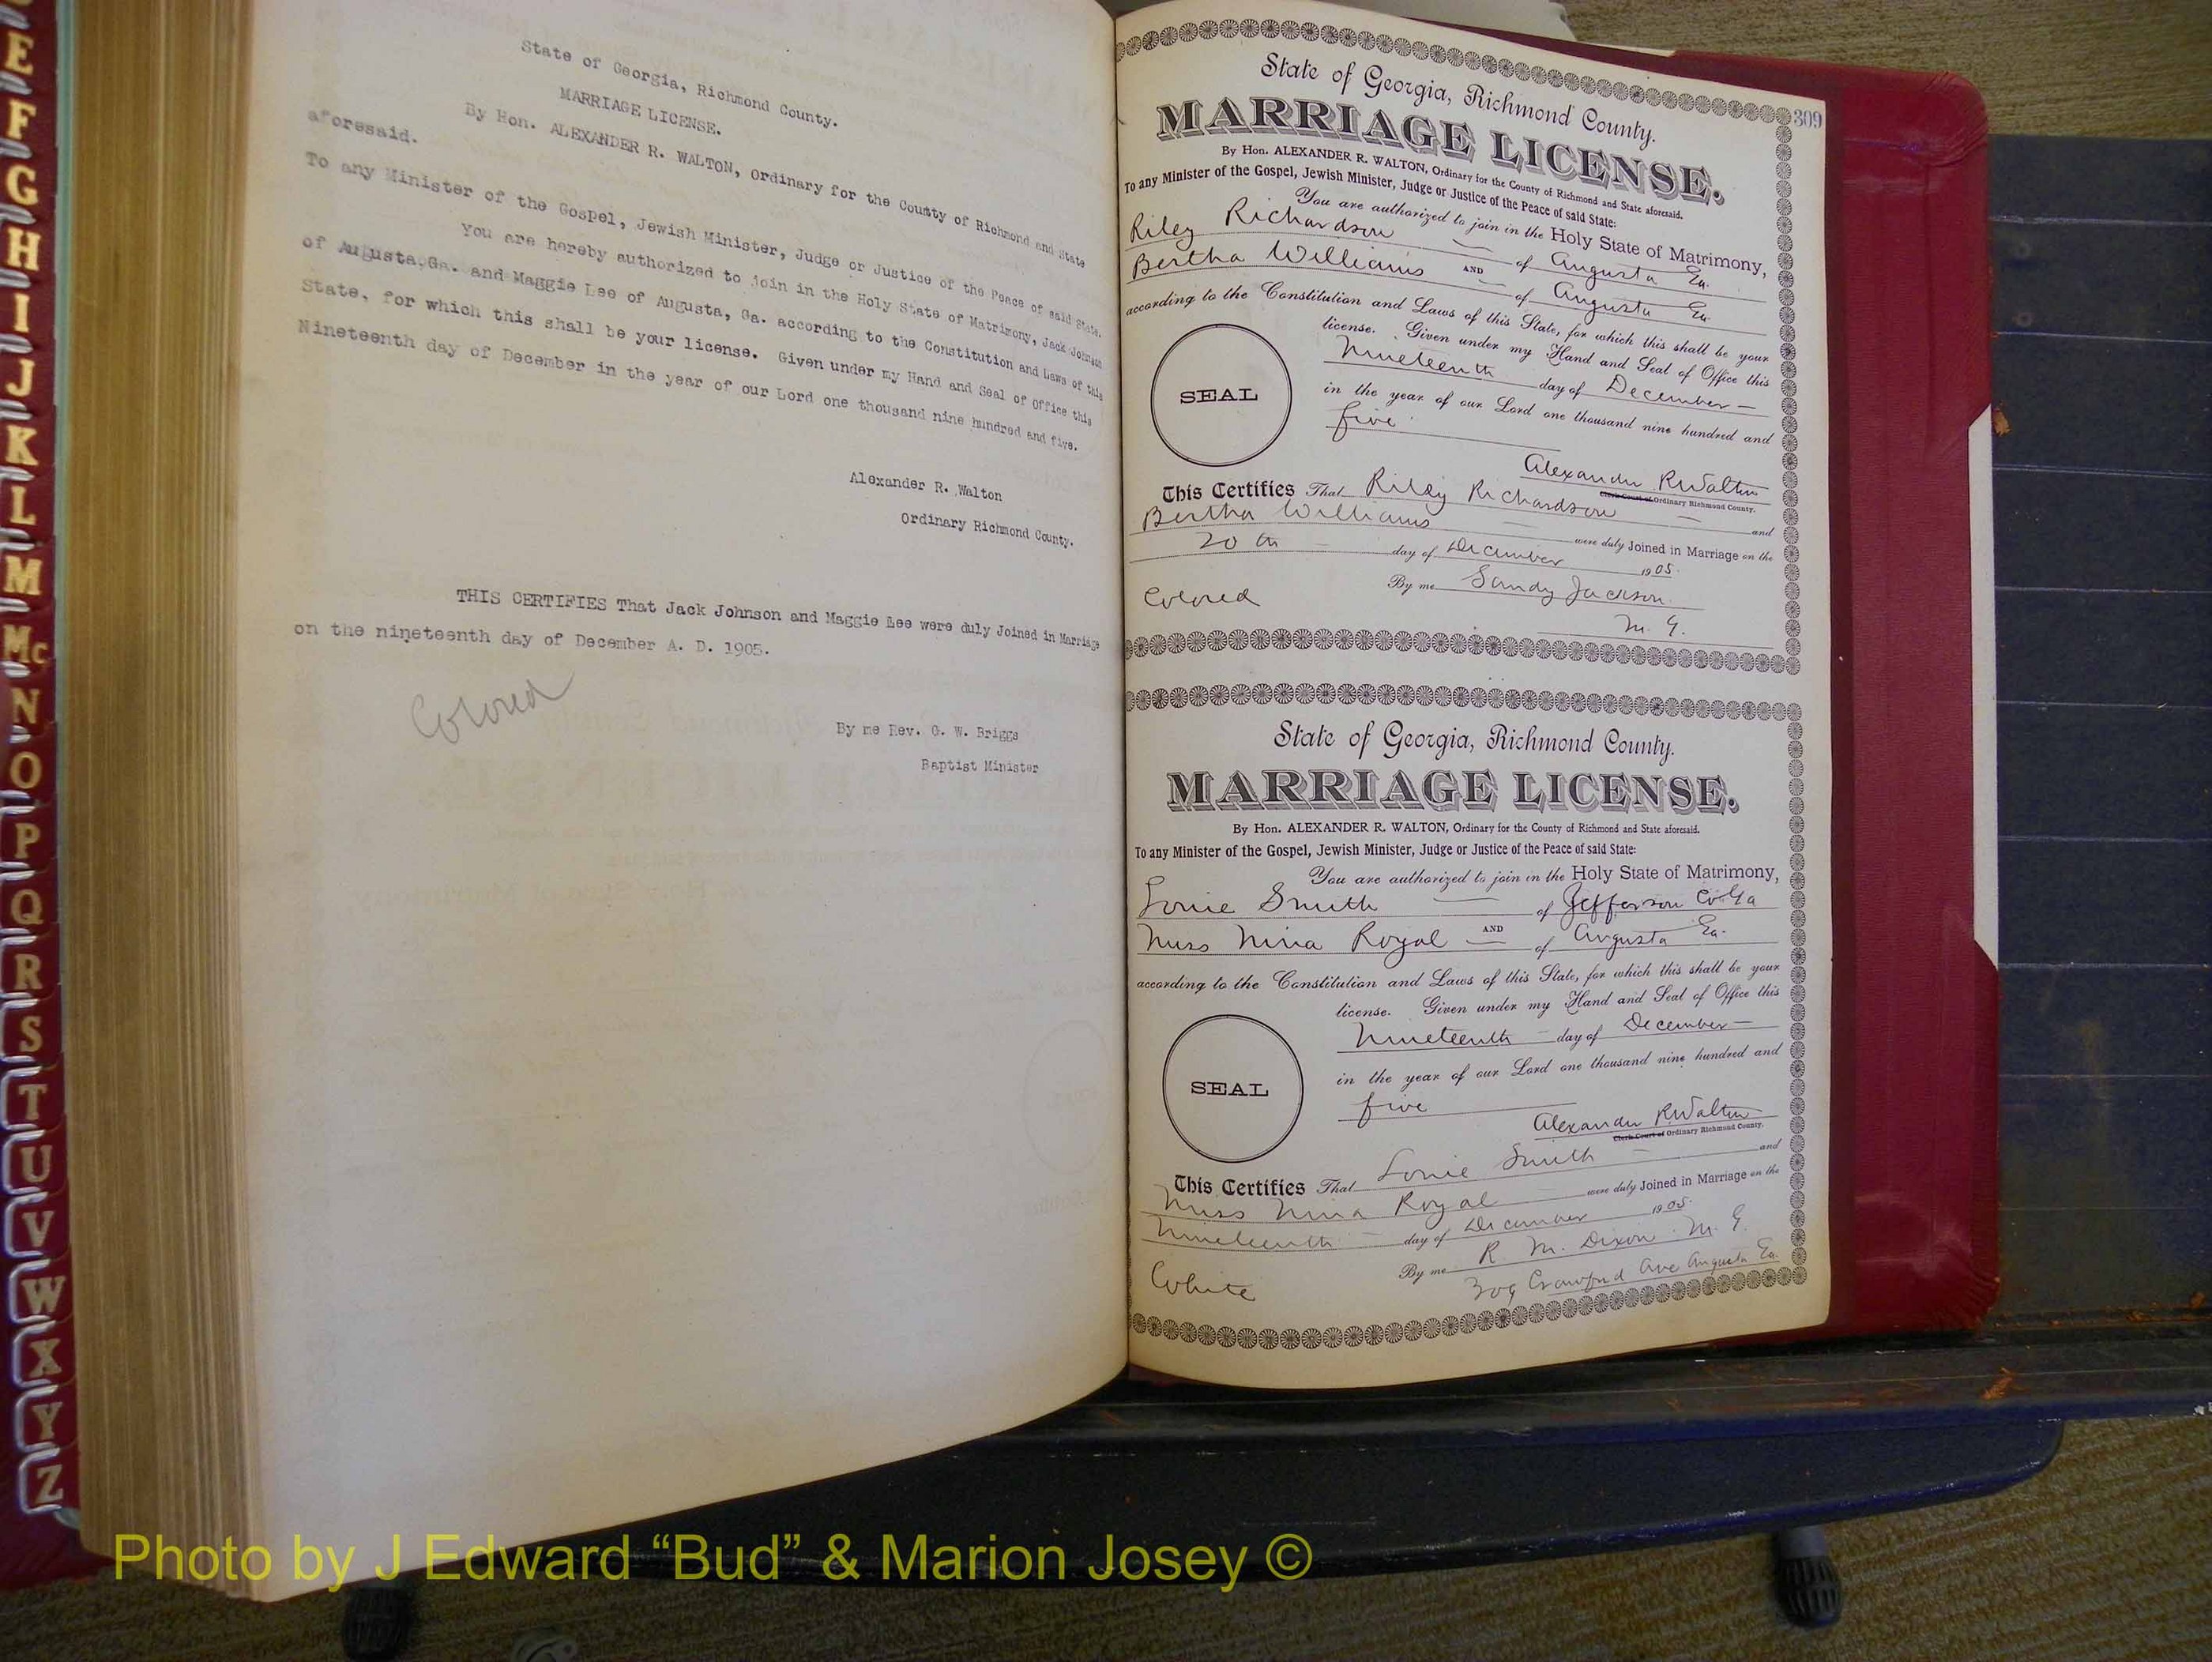 E
F
G
H
I
J
K
L
M
Mc
N
O
P
Q
R
S
T
U
V
W
X
Y
Z
State of Georgia, Richmond County.
MARRIAGE LICENSE.
By Hon. ALEXANDER R. WALTON, Ordinary for the County of Richmond and State
aforesaid.
To any Minister of the Gospel, Jewish Minister, Judge or Justice of the Peace of said State.
You are hereby authorized to join in the Holy State of Matrimony, Jack Johnson
of Augusta,Ga. and Maggie Lee of Augusta, Ga. according to the Constitution and Laws of this
State, for which this shall be your license. Given under my Hand and Seal of Office this
Nineteenth day of December in the year of our Lord one thousand nine hundred and five.
Alexander R. Walton
Ordinary Richmond County.
THIS CERTIFIES That Jack Johnson and Maggie Lee were duly Joined in Marriage
on the nineteenth day of December A. D. 1905.
Colored
By me Rev. G. W. Briggs
Baptist Minister
309
State of Georgia, Richmond County.
MARRIAGE LICENSE.
By Hon. ALEXANDER R. WALTON, Ordinary for the County of Richmond and State aforesaid.
To any Minister of the Gospel, Jewish Minister, Judge or Justice of the Peace of said State:
You are authorized to join in the Holy State of Matrimony,
Riley Richardson — of Augusta Ga.
AND
Bertha Williams — of Augusta Ga
according to the Constitution and Laws of this State, for which this shall be your
license. Given under my Hand and Seal of Office this
Nineteenth day of December —
in the year of our Lord one thousand nine hundred and
five
SEAL
Alexander R Walton
Clerk Court of Ordinary Richmond County.
This Certifies That Riley Richardson — and
Bertha Williams — were duly Joined in Marriage on the
20th — day of December 1905.
By me Sandy Jackson
M. G.
Colored
State of Georgia, Richmond County.
MARRIAGE LICENSE.
By Hon. ALEXANDER R. WALTON, Ordinary for the County of Richmond and State aforesaid.
To any Minister of the Gospel, Jewish Minister, Judge or Justice of the Peace of said State:
You are authorized to join in the Holy State of Matrimony,
Lonie Smith — of Jefferson Co Ga
AND
Miss Nina Royal — of Augusta Ga.
according to the Constitution and Laws of this State, for which this shall be your
license. Given under my Hand and Seal of Office this
Nineteenth — day of December —
in the year of our Lord one thousand nine hundred and
five
SEAL
Alexander R Walton
Clerk Court of Ordinary Richmond County.
This Certifies That Lonie Smith — and
Miss Nina Royal were duly Joined in Marriage on the
Nineteenth — day of December 1905.
By me R. M. Dixon M. G.
309 Crawford Ave Augusta Ga.
White
Photo by J Edward “Bud” & Marion Josey ©